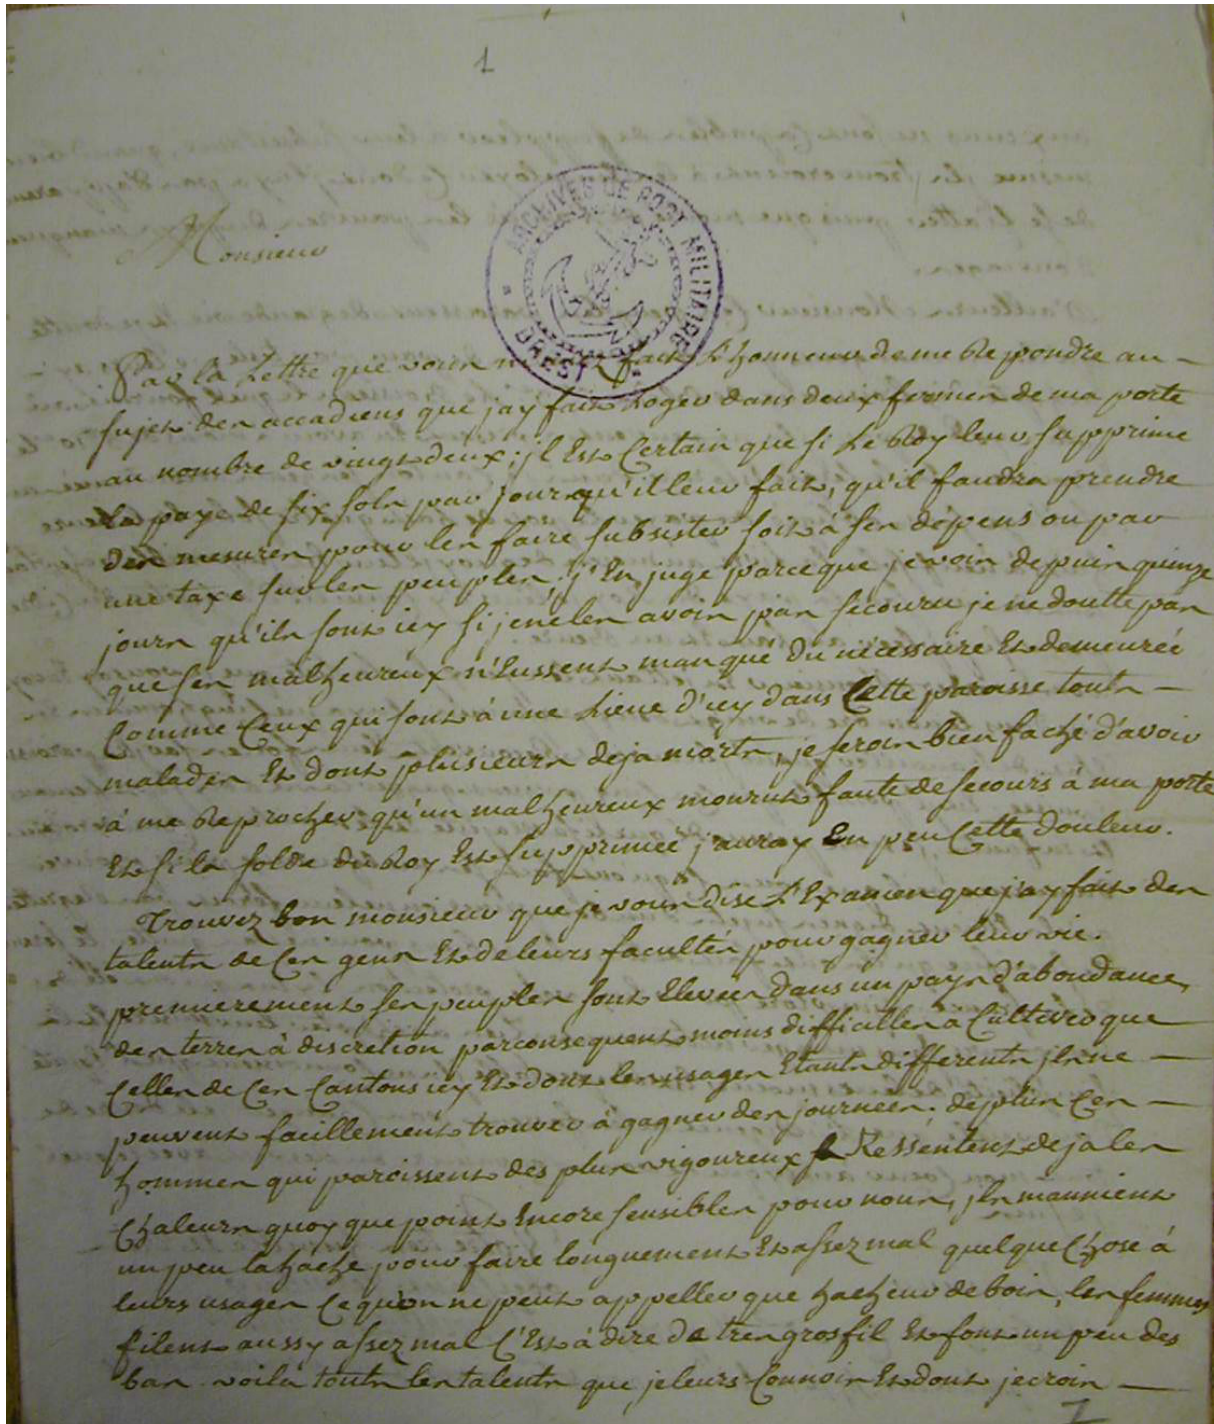 1
ARCHIVES DE PORT MILITAIRE
BREST
Monsieur
Par la Lettre que vous m'avez fait L'honneur de me Repondre au-
sujet des accadiens que jay fait Loger dans deux fermes de ma porte
au nombre de vingt deux; jl Est Certain que si Le Roy leur supprime
la paye de six sols par jour qu'il leur fait, qu'il faudra prendre
des mesures pour les faire subsister soit à ses dépens ou par
une taxe sur les peuples; j'En juge parce que je vois depuis quinze
jours qu'ils sont icy si je ne les avois pas secouru je ne doutte pas
que ses malheureux n'Eussent manqué du nécessaire Et demeuréé
Comme Ceux qui sont à une Lieue d'icy dans Cette paroisse touts -
malades Et dont plusieurs deja morts, je serois bien faché d'avoir
à me Reprocher qu'un malheureux mourut faute de secours à ma porte
Et si la solde du Roy Est supprimée j'auray En peu Cette douleur.
Trouvez bon monsieur que je vous dise L'Examen que j'ay fait des
talents de Ces gens Et de leurs facultés pour gagner leur vie.
premierement ses peuples sont Elevés dans un pays d'abondance,
des terres à discretion parconsequent moins difficilles a Cultiver que
Celles de Ces Cantons icy Et dont les usages Etants differents jls ne -
peuvent facillement trouver à gagner des journées. de plus Ces -
hommes qui paroissent des plus vigoureux Ressentent deja les
Chaleurs quoy que point Encore sensibles pour nous, jls mannient
un peu la hache pour faire longuement Et assez mal quelque Chose à
leurs usages Ce qu'on ne peut appeller que hacheur de bois, les femmes
filent aussy assez mal C'Est à dire de tres gros fil Et font un peu des
bas voila touts les talents que je leurs Connois Et dont je crois -